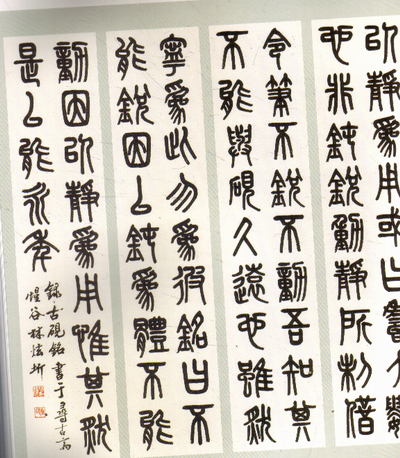 以靜爲用或曰壽夭數
也非鈍銳動靜所制借
令筆不銳不動吾知其
不能與硯久遠也雖然
寧爲此勿爲彼銘曰不
能銳因以鈍爲體不能
動因以靜爲用惟其然
是以能永年
錄古硯銘書于尋古齋
谷林